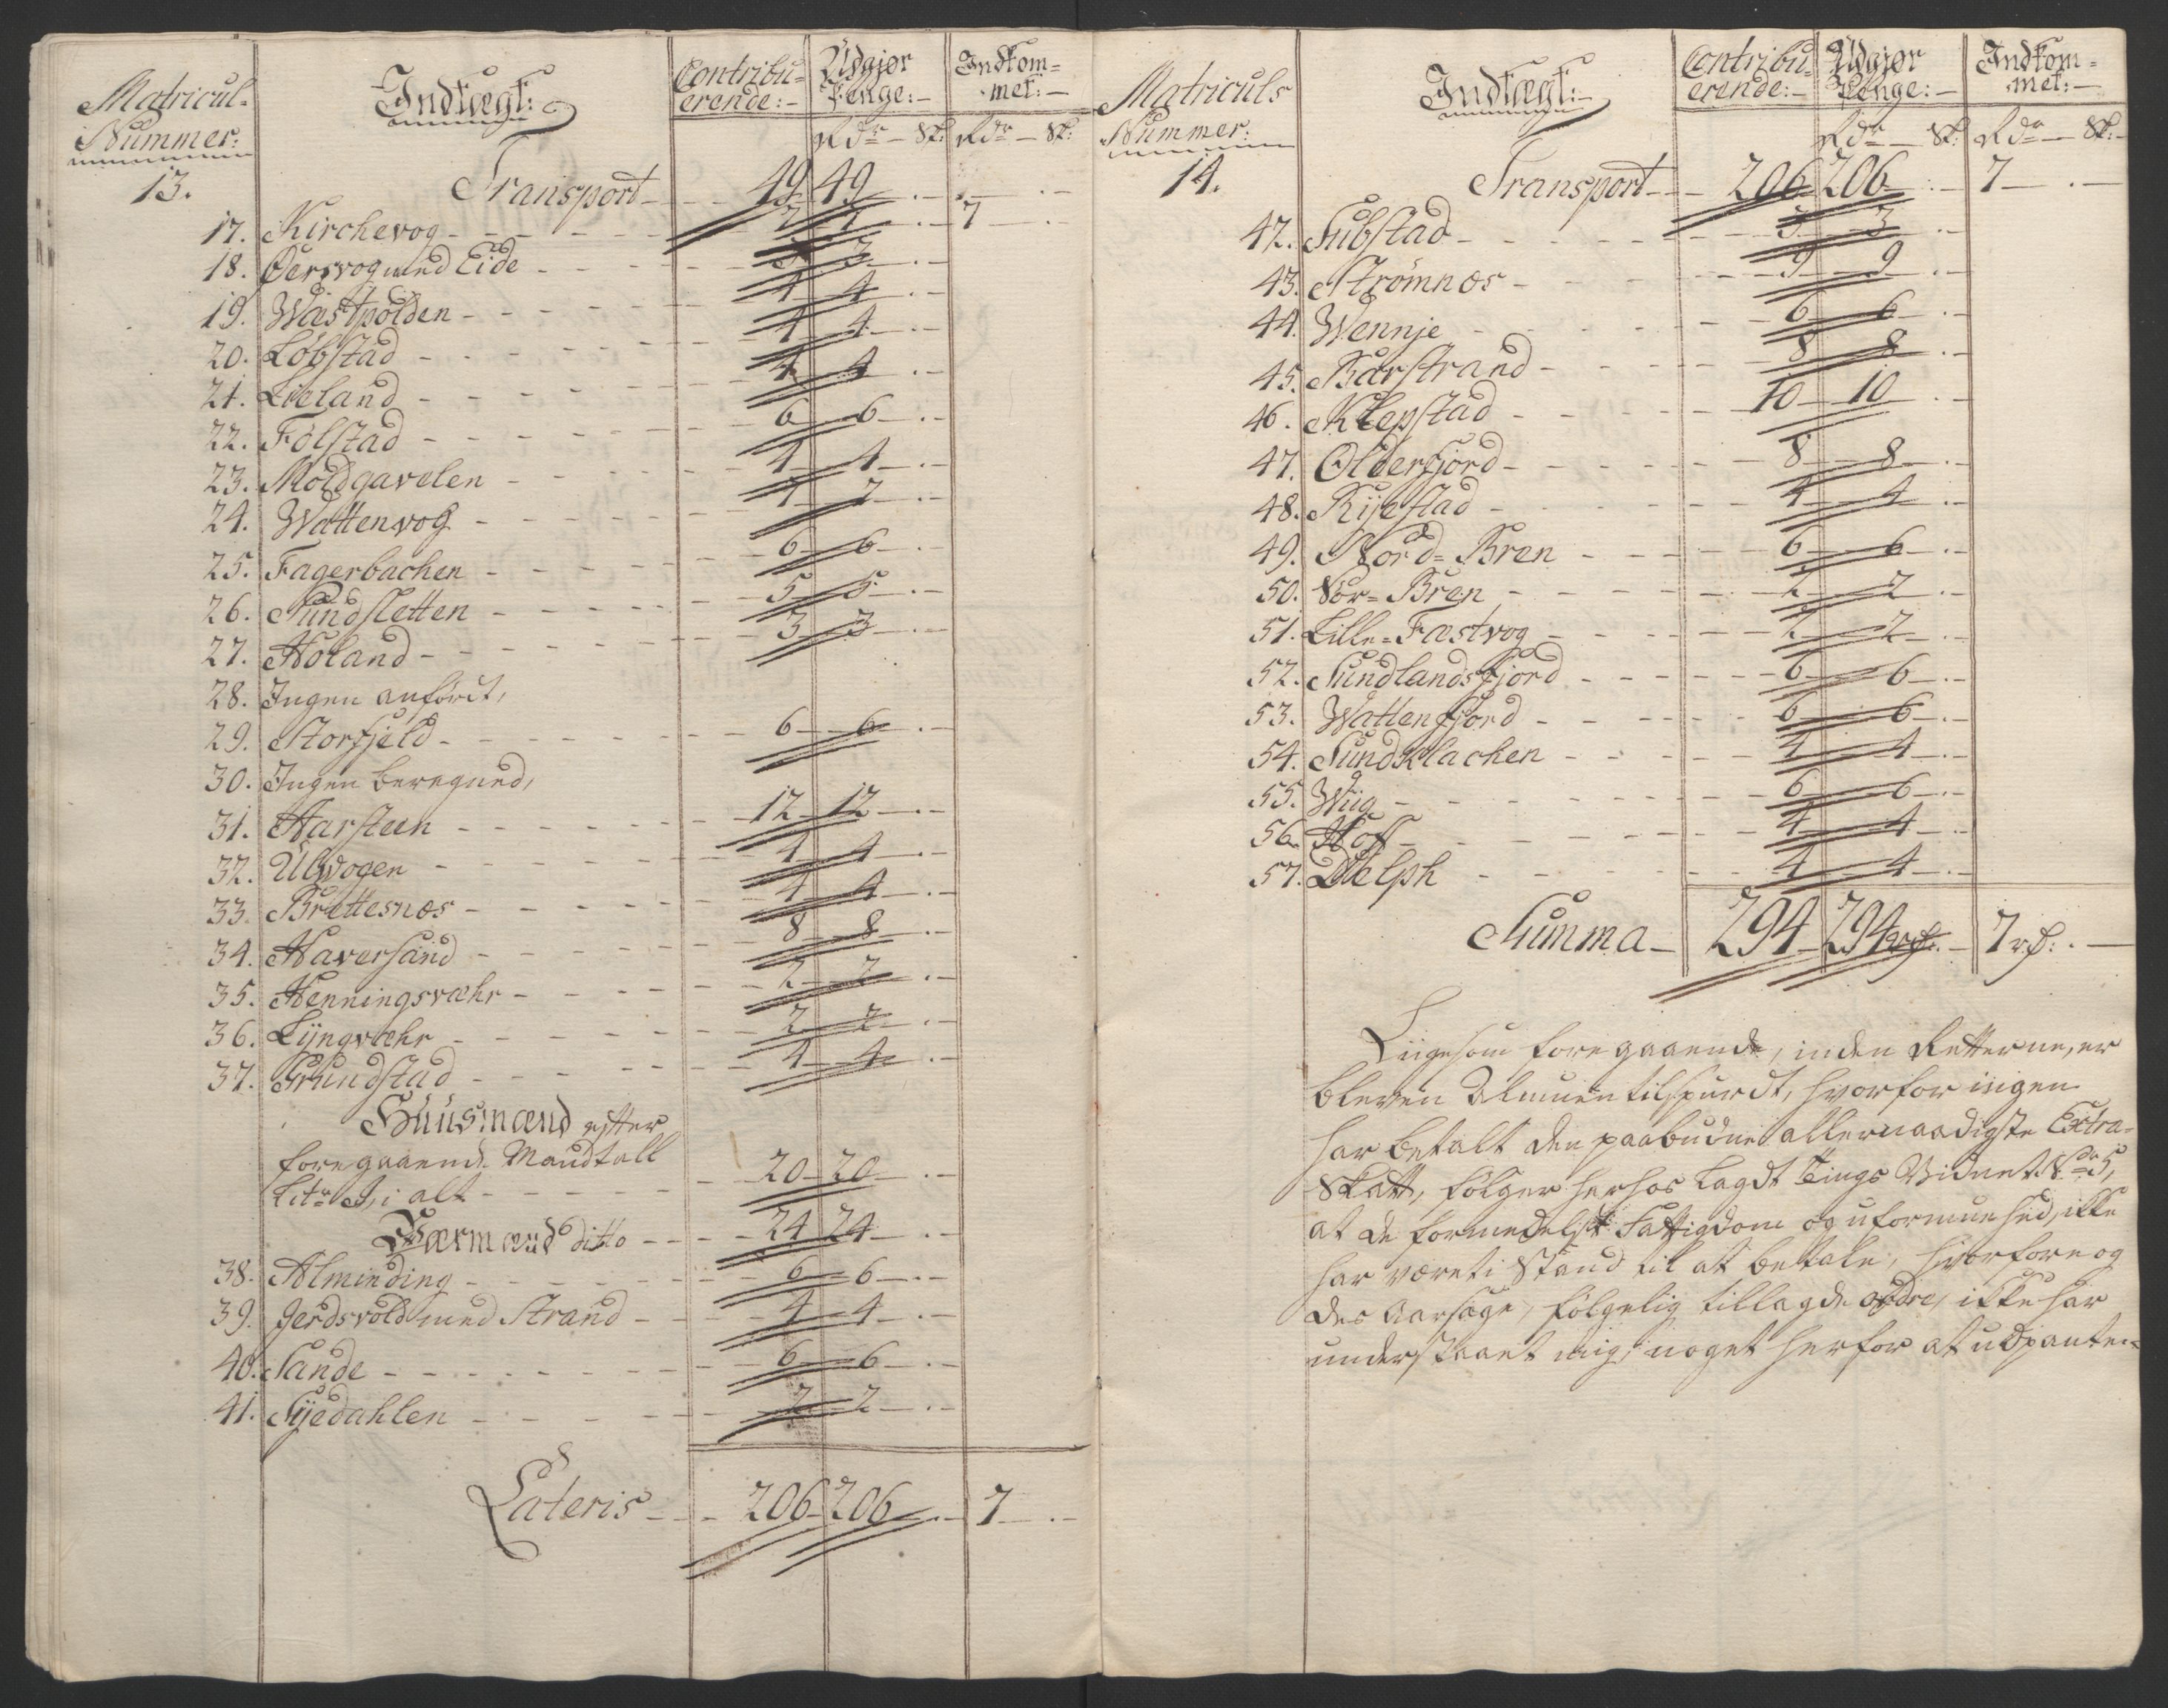 Matricul-
Nummer:
Indtægt:
Contribu-
erende:-
Udgjør
Penge:-
Indkom-
met:-
Rdr - Sk: Rdr - Sk:
13.
Transport - - 49 49 . - . -
17. Kirchevog - - - 7 7 . - 7 . -
18. Øersvog med Eide - - - 3 3 . -
19. Wæstpolden - - - 4 4 . -
20. Løbstad - - - 4 4 . -
21. Lieland - - - 4 4 . -
22. Følstad - - - 6 6 . -
23. Moldgavelen - - - 4 4 . -
24. Wattenvog - - - 2 2 . -
25. Fagerbachen - - - 6 6 . -
26. Sundsletten - - - 5 5 . -
27. Høland - - - 3 3 . -
28. Ingen anført,
29. Storfjeld - - - 6 6 . -
30. Ingen beregned,
31. Harsteen - - - 12 12 . -
32. Ulvogen - - - 4 4 . -
33. Brettesnæs - - - 4 4 . -
34. Haversand - - - 8 8 . -
35. Henningsvæhr - - - 2 2 . -
36. Lyngvæhr - - - 2 2 . -
37. Grundstad - - - 4 4 . -
Huusmænd efter
foregaaende Mandtall
Litr I, i alt - - - 20 20 . -
Værmænd ditto - - - 24 24 . -
38. Alminding - - - 6 6 . -
39. Jerdsvold med Strand - - - 4 4 . -
40. Sande - - - 6 6 . -
41. Syedahlen - - - 2 2 . -
Lateris - - 206 206 . - 7 . -
Matriculs
Nummer:
Indtægt:-
Contribu-
erende:-
Udgjør
Penge:-
Indkom-
met:-
Rdr - Sk: Rdr - Sk:-
14.
Transport - - 206 206 : - 7 - . -
42. Substad - - - 3 3 . -
43. Strømnæs - - - 9 9 . -
44. Wennje - - - 6 6 . -
45. Barstrand - - - 8 8 . -
46. Klepstad - - - 10 10 . -
47. Olderfjord - - - 8 8 . -
48. Rijestad - - - 4 4 . -
49. Nord-Bren - - - 6 6 . -
50. Sør-Bren - - - 2 2 . -
51. Lille-Fæstvog - - - 2 2 . -
52. Sundlandsfjord - - - 6 6 . -
53. Wattenfjord - - - 6 6 . -
54. Sundklachen - - - 4 4 . -
55. Wiig - - - 6 6 . -
56. Hoff - - - 4 4 . -
57. Dielph - - - 4 4 . -
Summa - 294 294 rd. - 7 rd: . -
Liigesom foregaaende, inden Retterne, er
bleven Almuen tilspurdt, hvorfor ingen
har betalt den paabudne allernaadigste Extra-
Skatt, følger herhos lagdt Tings Vidnet No 5,
at de formedelst Fattigdom og uformuenhed, ikke
har været i Stand til at betale, hvorfore og
des Aarsage, følgelig tillagde ordre, ikke har
understaaet mig, noget herfor at udpante.-